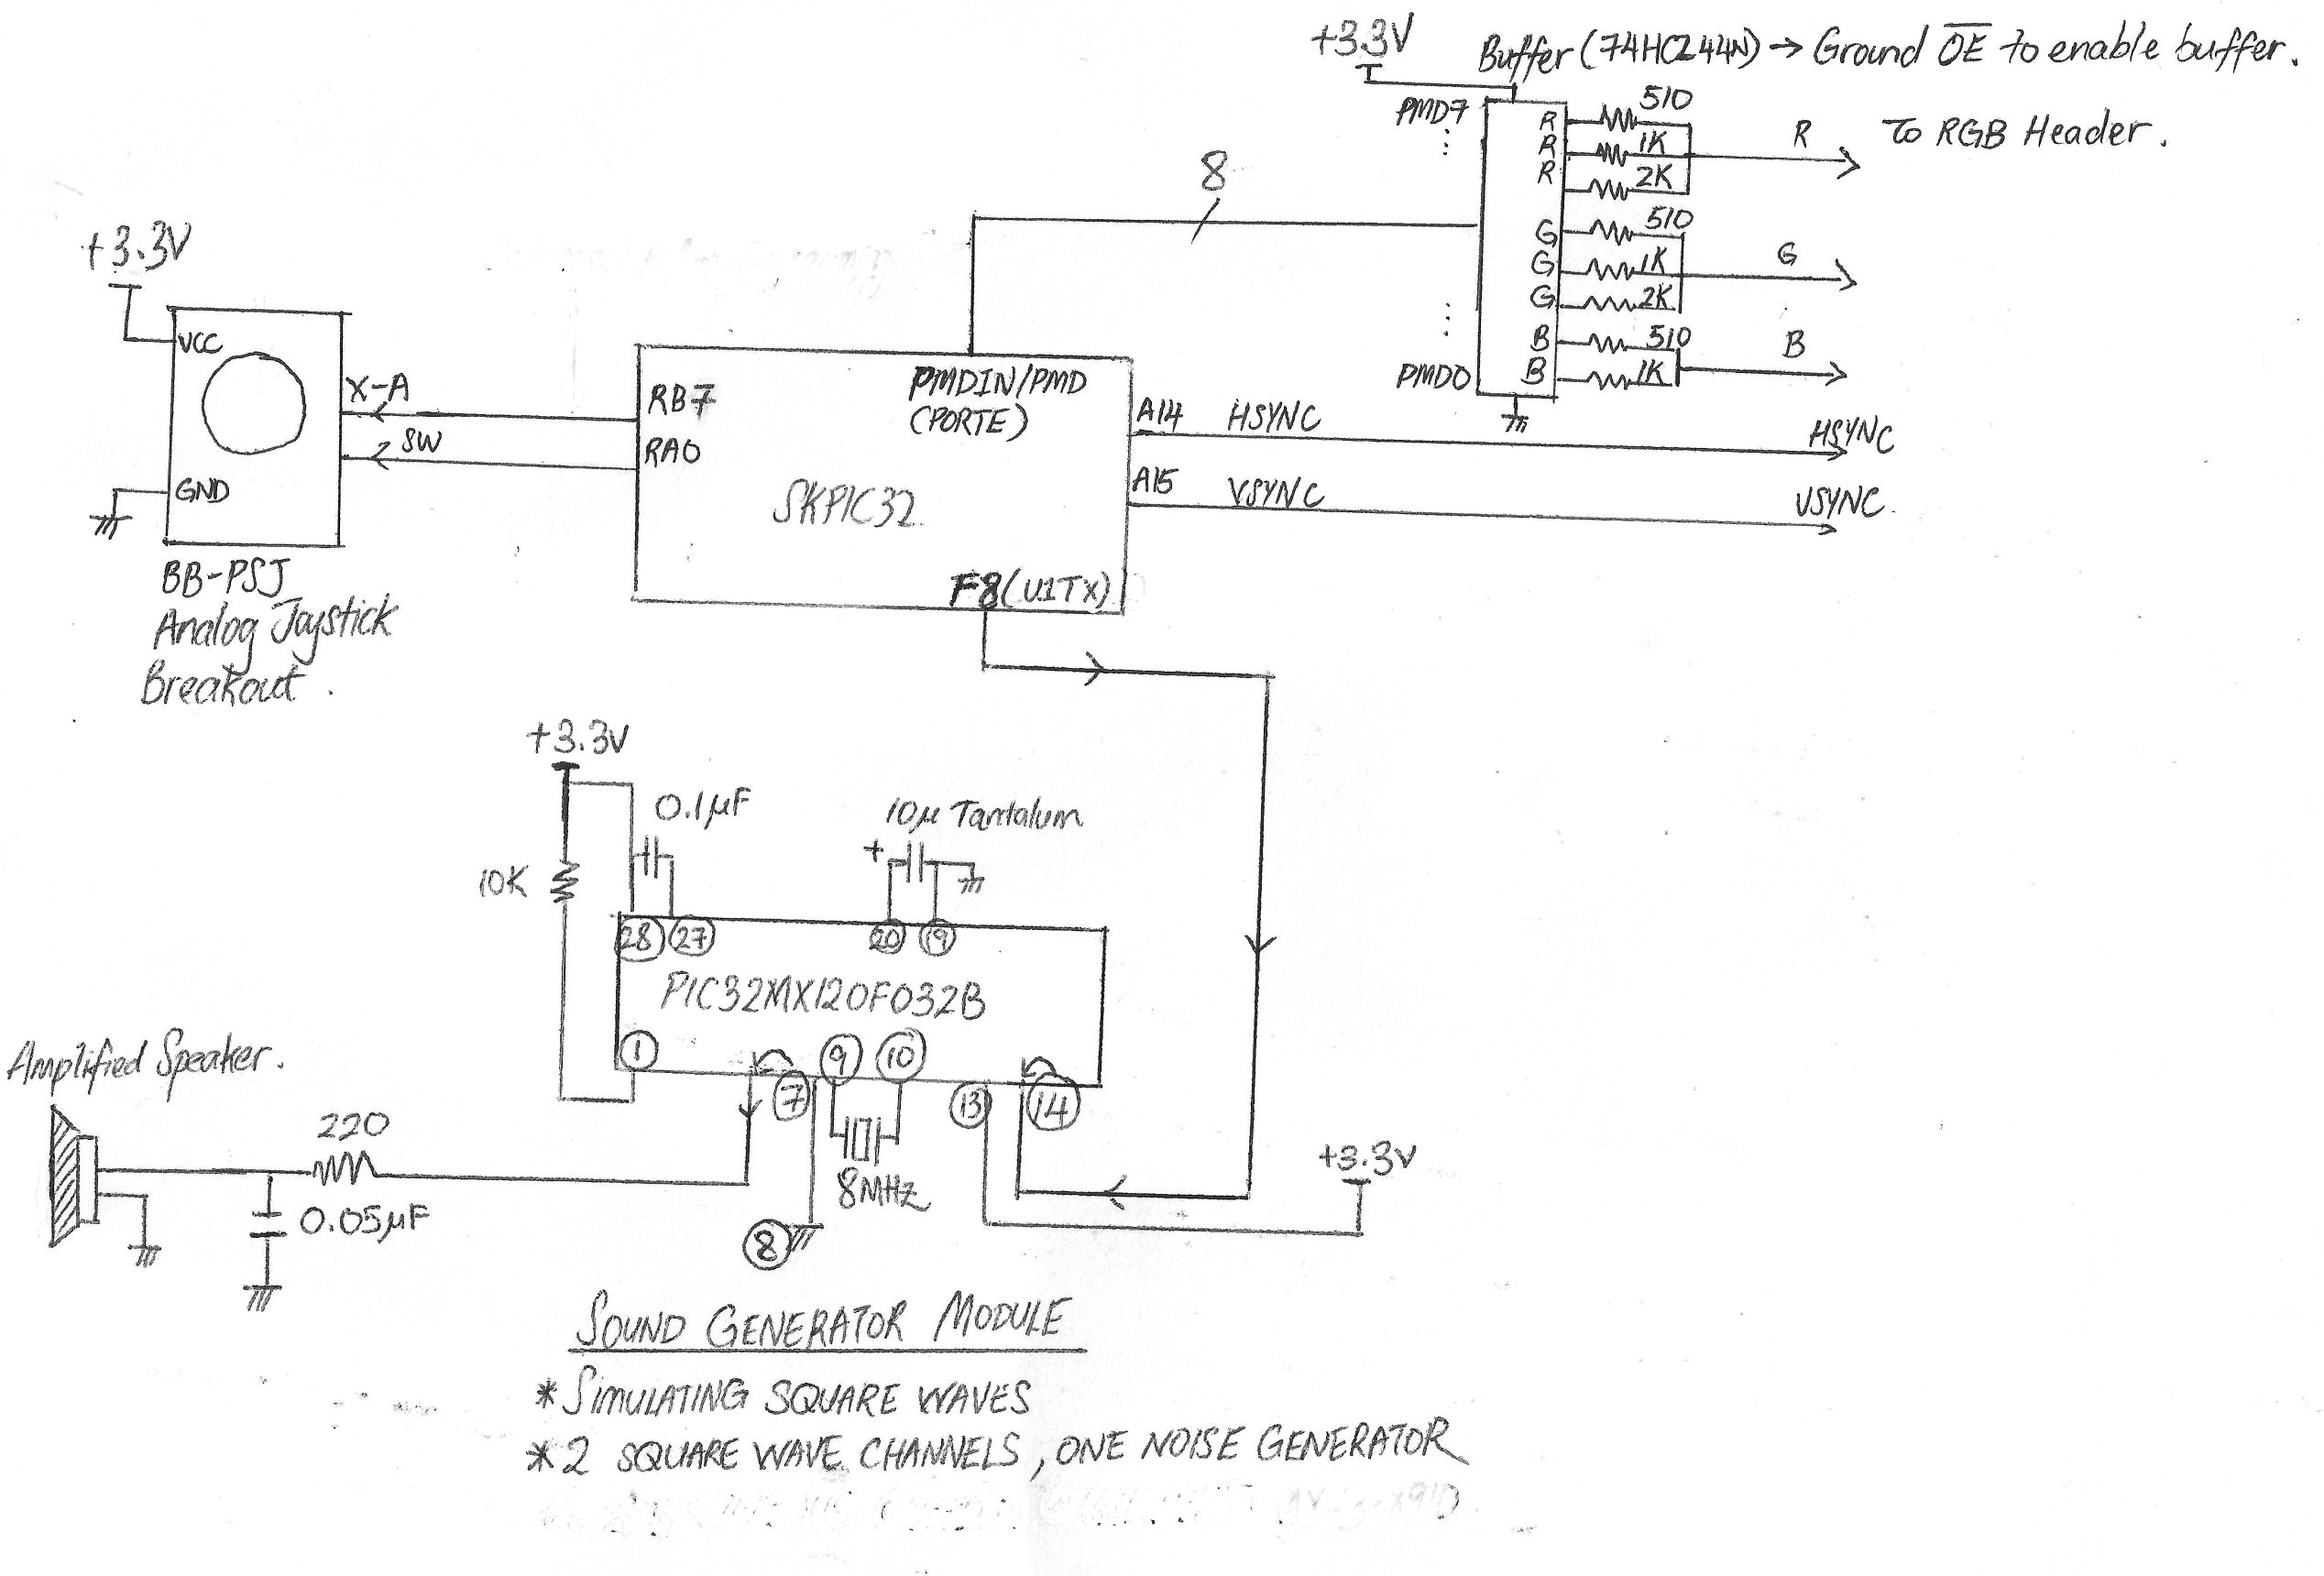 +3.3V
Buffer (74HC244N) → Ground O̅E̅ to enable buffer.
PMD7
R
R
R
510
1K
2K
R
To RGB Header.
8
G
G
G
510
1K
2K
G
B
B
510
1K
B
PMD0
+3.3V
VCC
GND
X-A
SW
BB-PSJ
Analog Joystick
Breakout.
RB7
RA0
PMDIN/PMD
(PORTE)
SKPIC32
F8(U1TX)
A14 HSYNC
HSYNC
A15 VSYNC
VSYNC
+3.3V
0.1µF
10µ Tantalum
+
10K
28 27
20 19
PIC32MX120F032B
1
7
9
10
13
14
8MHz
8
+3.3V
Amplified Speaker.
220
0.05µF
SOUND GENERATOR MODULE
* SIMULATING SQUARE WAVES
* 2 SQUARE WAVE CHANNELS, ONE NOISE GENERATOR